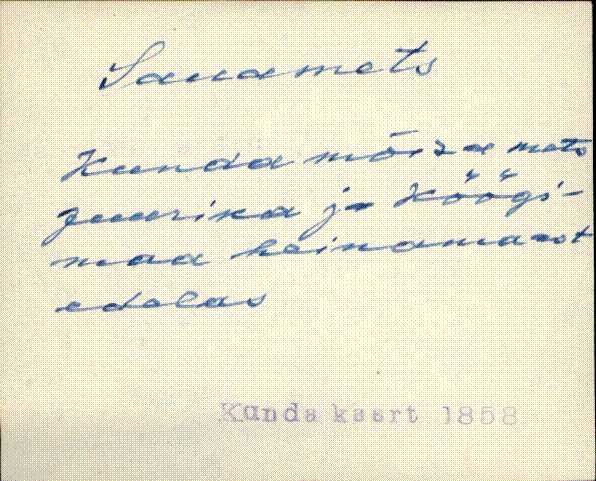 Sauamets
Kunda mõisa mets
Juurika ja Köögi-
maa heinamaast
edelas
Kunda kaart 1858